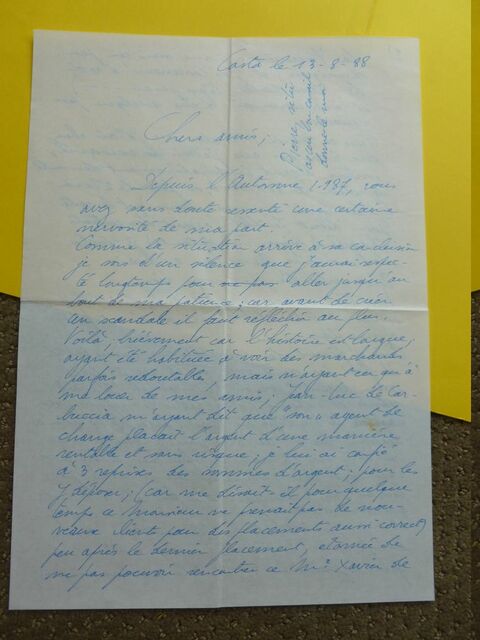 Costa le 13-8-88
Pierre si tu
as un
donne le moi
Chers amis;
Depuis l'Automne 1.987, vous
avez sans doute ressenti une certaine
nervosité de ma part.
Comme la situation arrive à sa conclusion
je sors d'un silence que j'aurai respec-
té longtemps pour ne pas aller jusqu'au
bout de ma patience; car avant de créer
un scandale il faut réfléchir au plus.
Voilà, brièvement car l'histoire est longue;
ayant été habituée à voir des marchands
parfois redoutables mais n'ayant cru qu'à
de mes amis; Jean-Luc de Car-
buccia m'ayant dit que "son" agent de
change plaçait l'argent d'une manière
rentable et sans risque; je lui ai confié
à 3 reprises des sommes d'argent; pour les
y déposer; (car me disait-il pour quelque
temps ce Monsieur ne prenait pas de nou-
veaux clients pour des placements aussi corrects)
peu après le dernier placement, étonnée de
ne pas pouvoir rencontrer ce Mr Xavier de